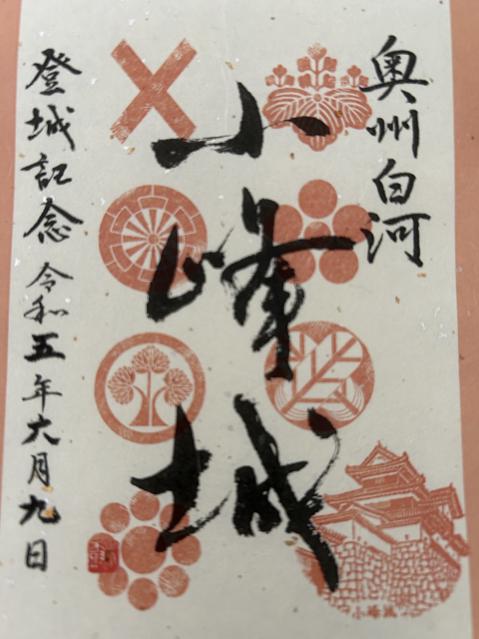 奥州白河
小峰城
登城記念 令和五年六月九日
小峰城